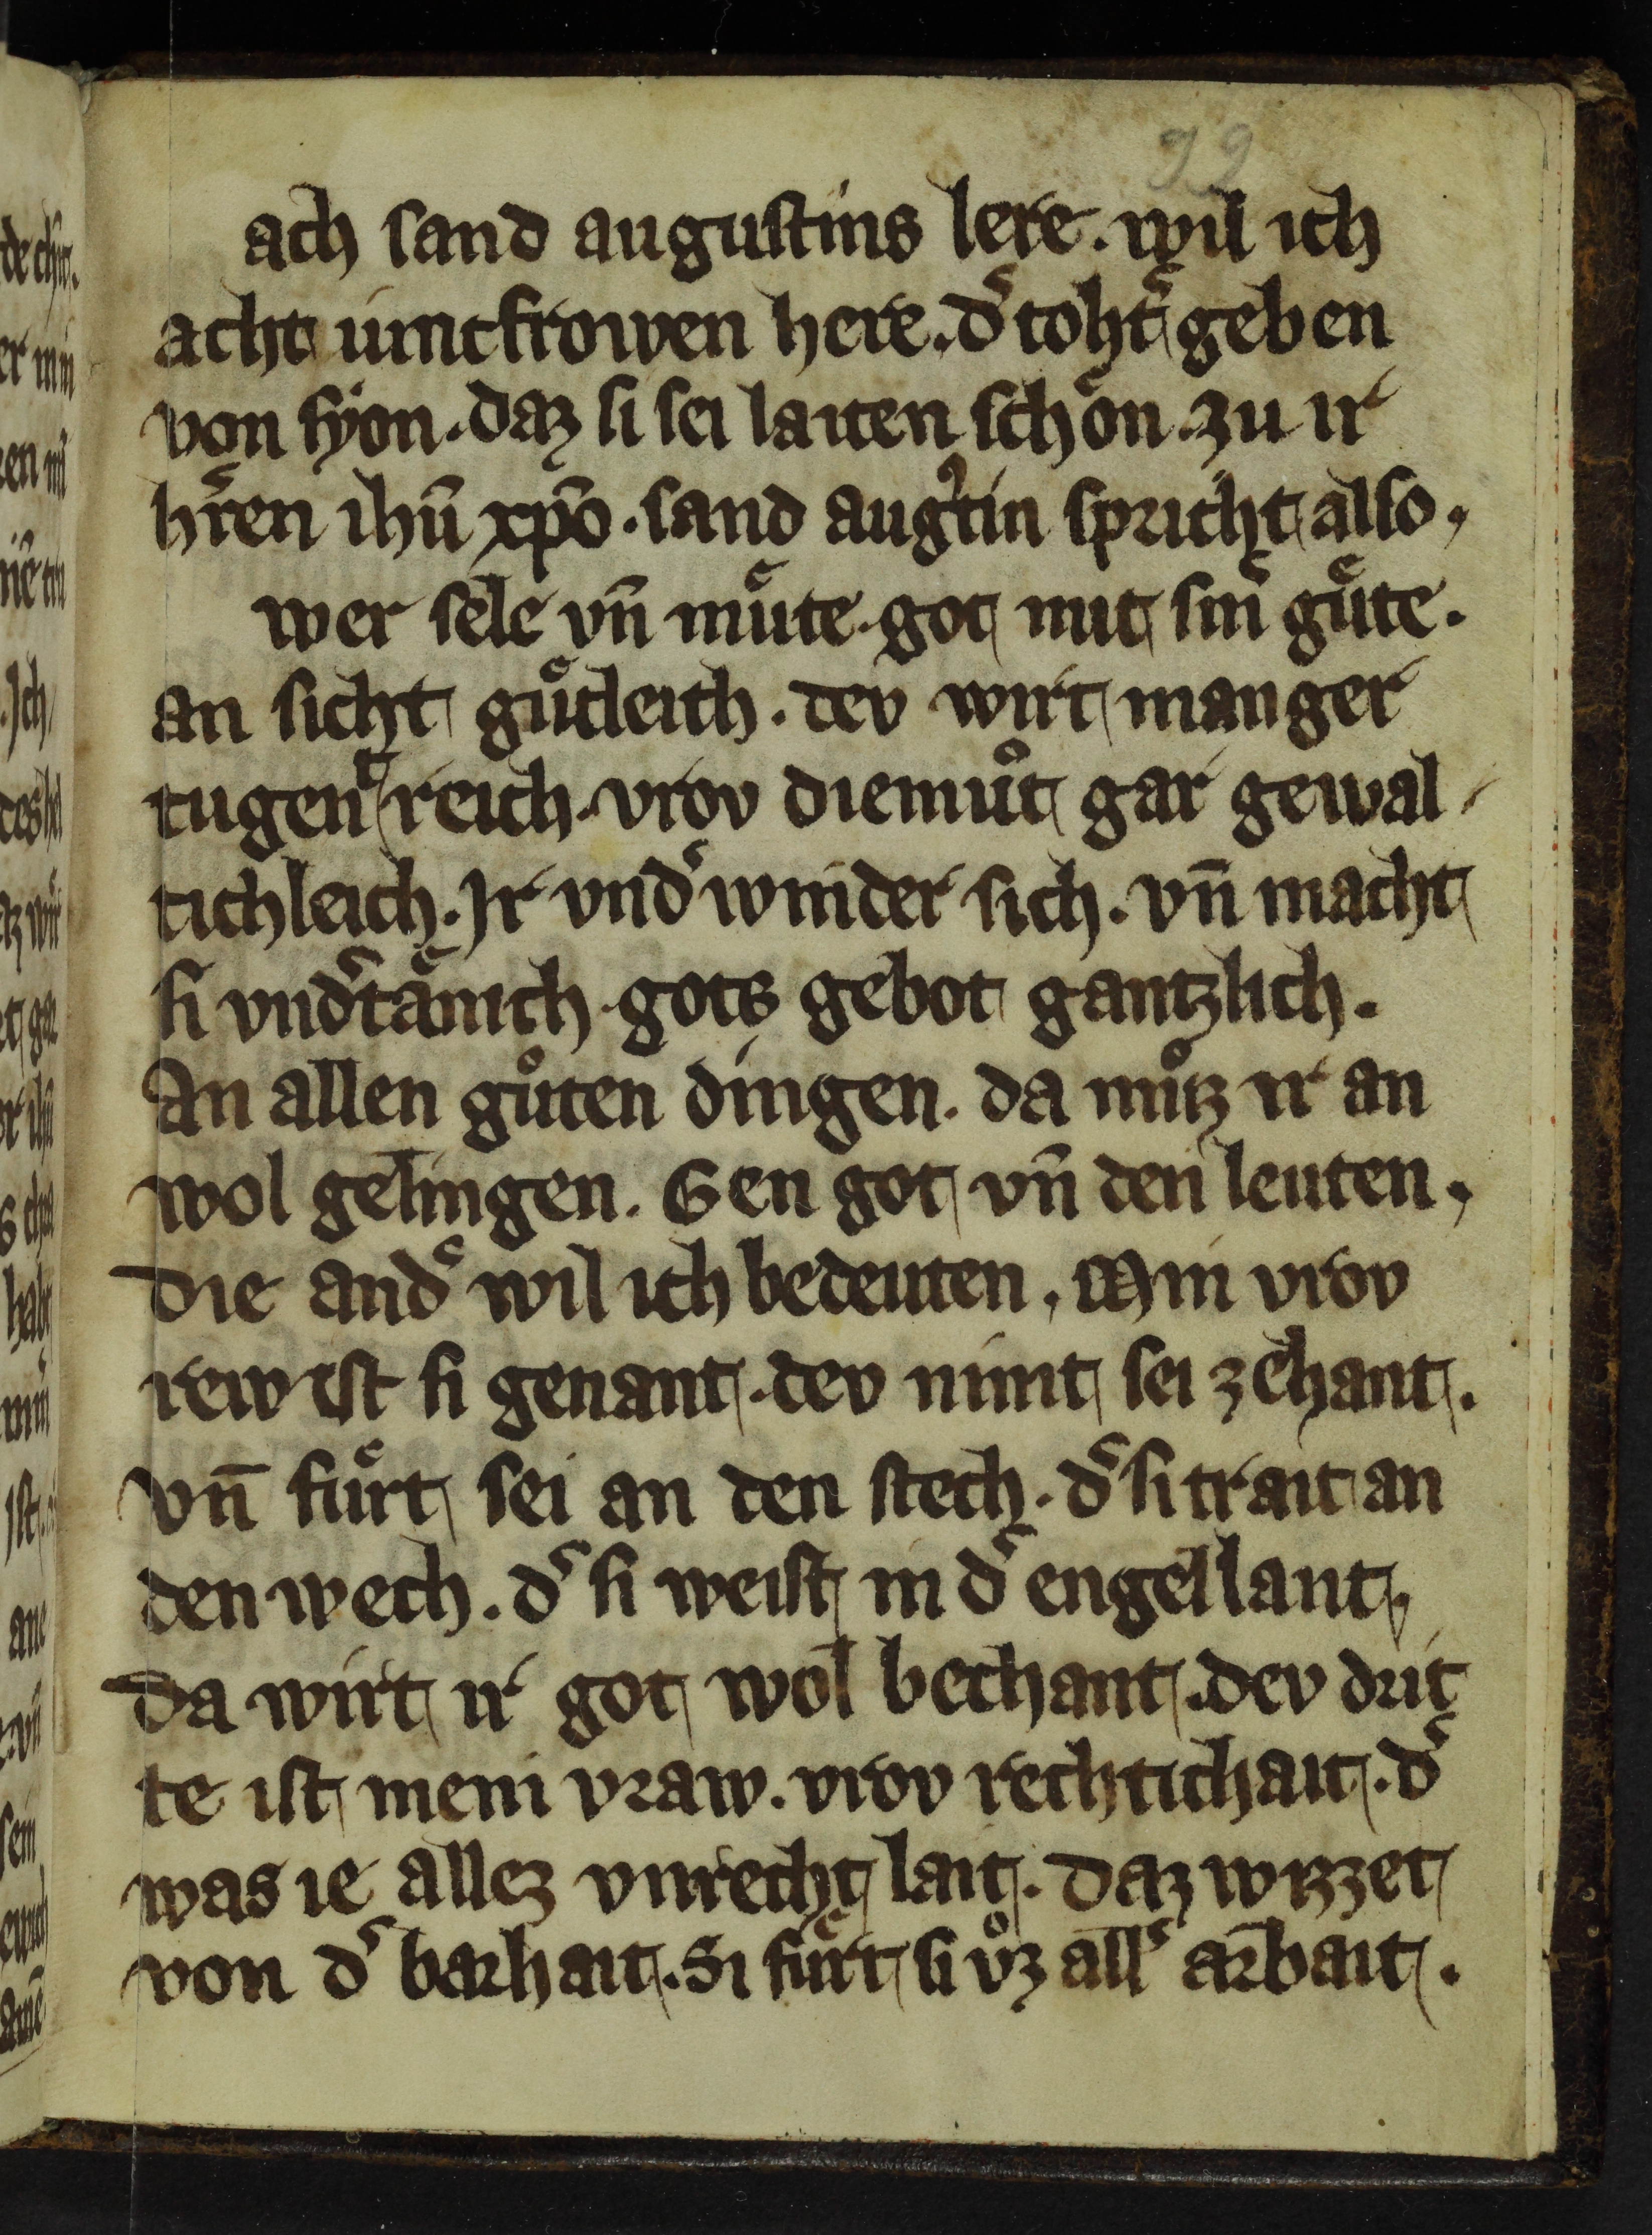 99
ach sand augustins lere. wil ich
acht iuncfrowen here. dˢ tohtˢ geben
von syon. daz si sei laiten schoͤn. zu ir
hˢren ihū xp̄o. sand augˀtin spricht also.
wer sele vn̄ muͤte. got mit sinˢ guͤte.
an sicht guͤtleich. dev wirt manger
tugent reich. vrov diemuͦt gar gewal
tichleich. Ir vndˢwinder sich. vn̄ macht
si vndˢtaͤnich gots gebot gantzlich.
An allen guͦten dingen. da muͦz ir an
wol gelingen. Gen got vn̄ den leuten.
Die andˢ wil ich bedeuten. Min vrov
rew ist si genant. dev nimt sei zehant.
Vn̄ fuͤrt sei an den stech. dˢ si trait an
den wech. dˢ si weist in dˢ engel lant.
Da wirt ir got wol bechant. dev drit
te ist mein vraw. vrov rechtichait. dˢ
was ie allez vnrecht lait. Daz wizzet
von dˢ barhait. Si fuͤrt si vͦz allˢ arbait.